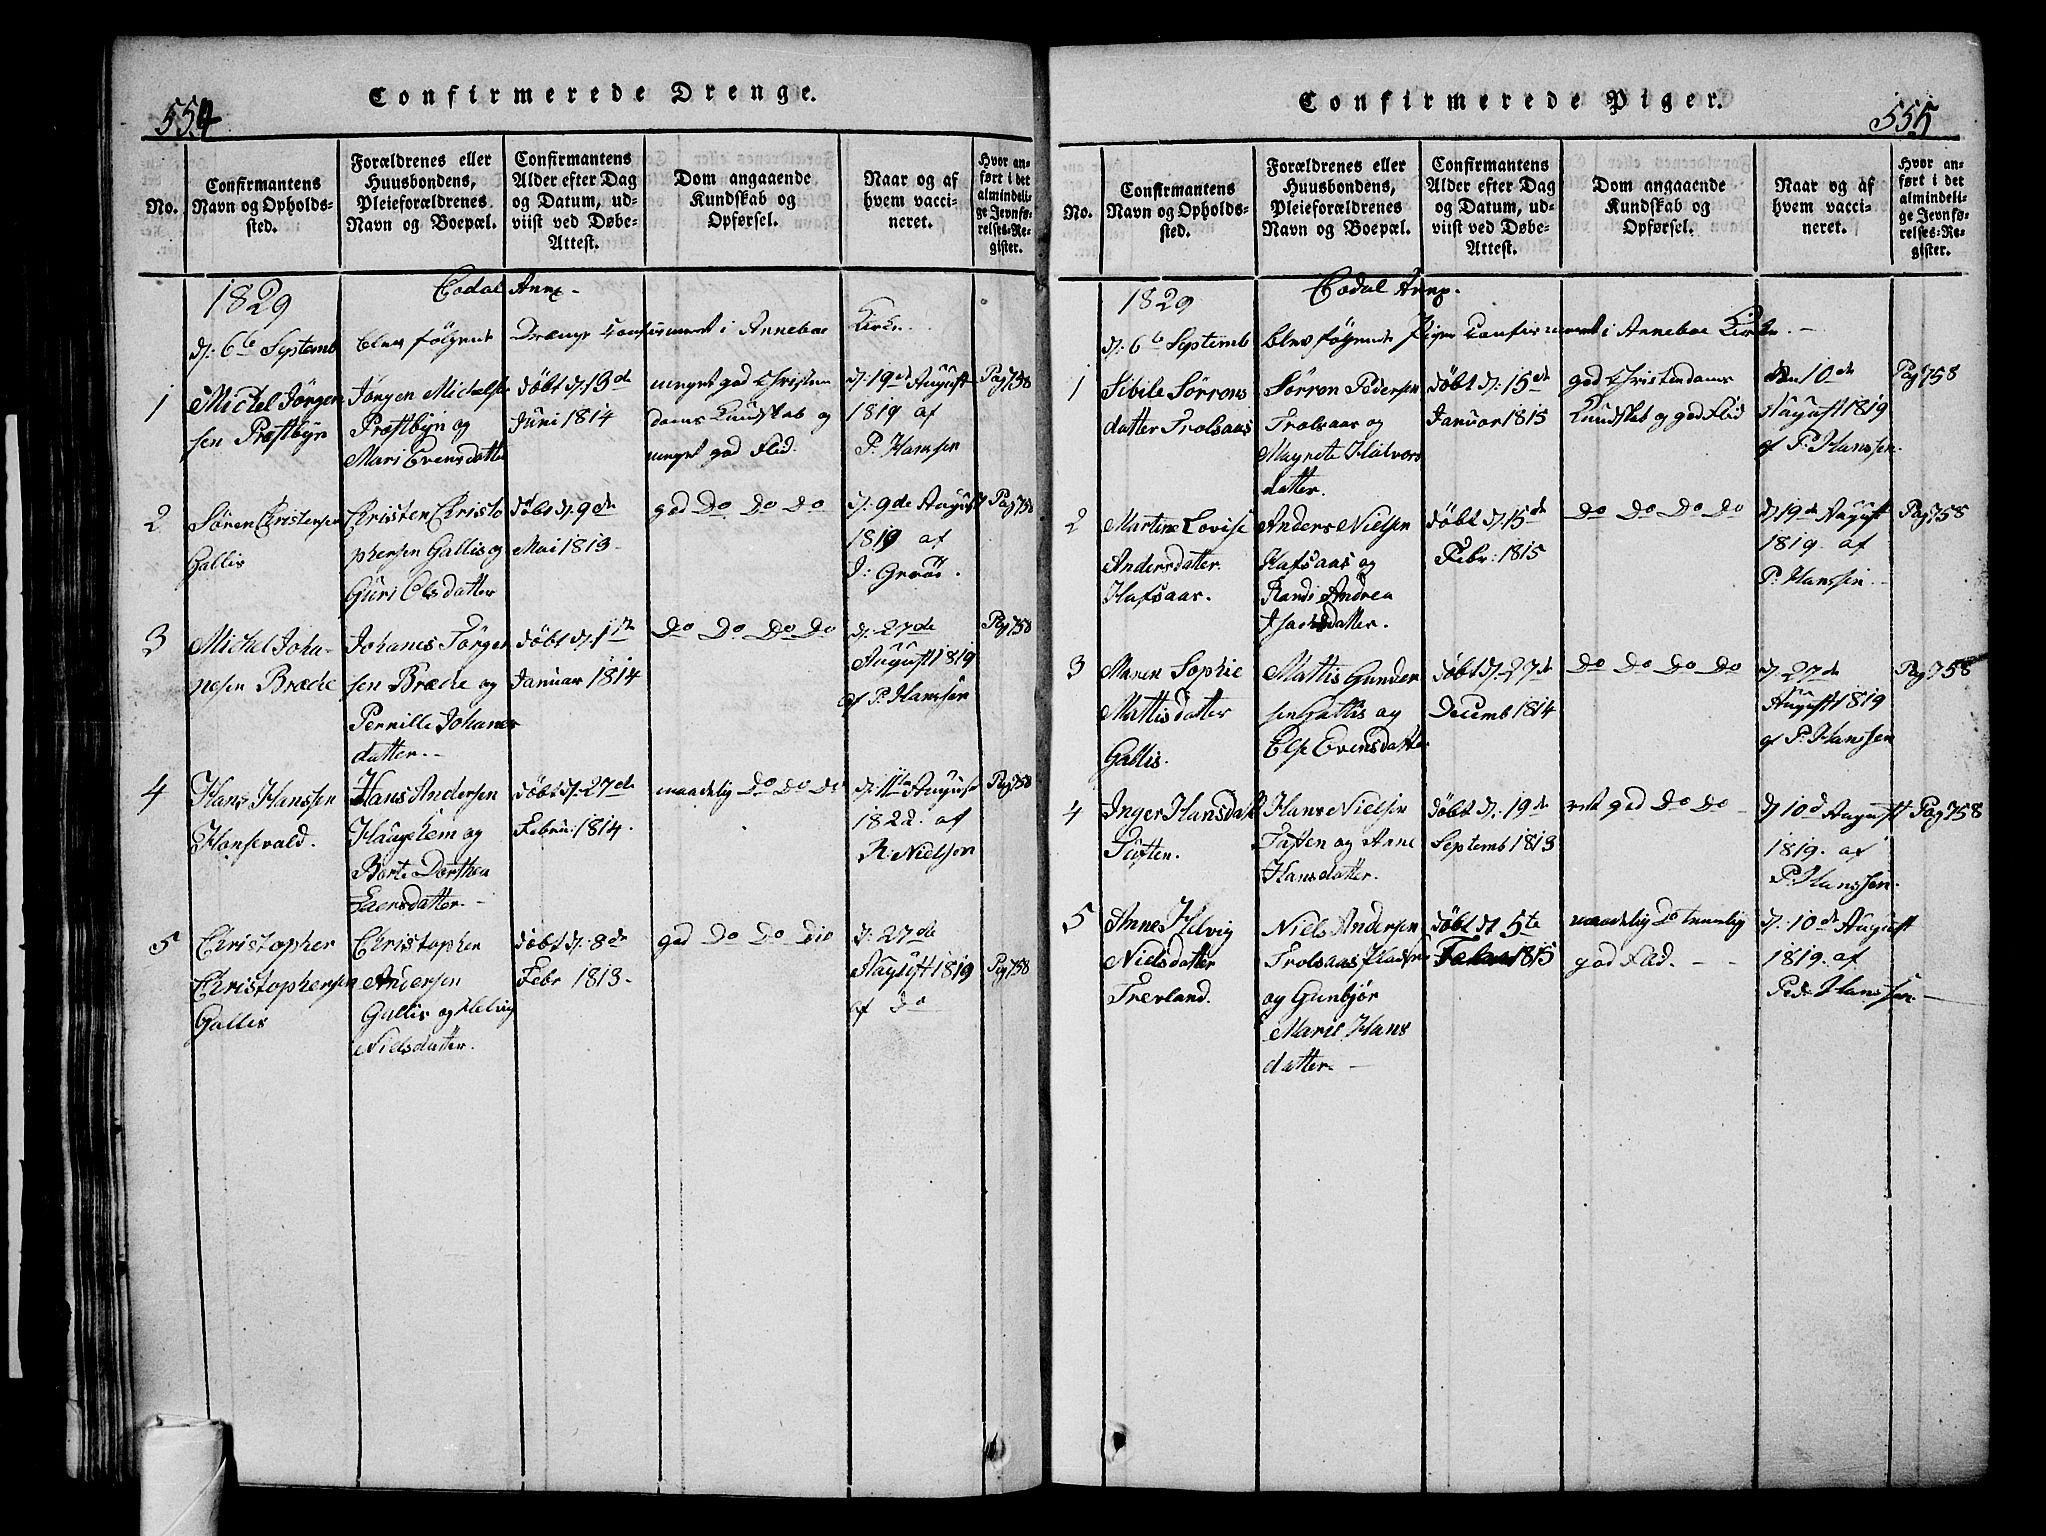 554
Confirmerede Drenge.
No.
Confirmantens
Navn og Opholds-
sted.
Forældrenes eller
Huusbondens,
Pleieforældrenes
Navn og Boepæl.
Confirmantens
Alder efter Dag
og Datum, ud-
viist ved Døbe-
Attest.
Dom angaaende
Kundskab og
Opførsel.
Naar og af
hvem vacci-
neret.
Hvor an-
ført i det
almindeli-
ge Jevnfø-
relses-Re-
gister.
1829
Annx.
d. 6te Septemb blev følgende Drænge Confirmeret i Anneboe Kirke.
1
Michel Jørgen
sen Præstbÿn
Jørgen Michelse
Præstbÿn og
Mari Evensdatte
døbt d. 13de
Juni 1814
meget god Christen
doms Kundskab og
meget god Flid.
d. 19de August
1819 af
P. Hanssen
Pag 758
2
Søren Christensen
Gallis
Christen Christo
phersen Gallis og
Guri Olsdatter
døbt d. 9de
Mai 1813
god Do Do Do
d. 9de August
1819 af
Pag 758
3
Michel Joha-
nesen Bræde
Johanes Jørgen
sen Bræde og
Pernille Johanes
datter.
døbt d. 1ste
Januar 1814
Do Do Do Do
d. 27de
August 1819
af P. Hanssen
Pag 758
4
Hans Hanssen
Honsevald.
Hans Andersen
Haugehem og
Berte Dorthea
Larsdatter.
døbt d. 27de
Febru: 1814.
maadelig Do Do Do
d. 11te August
1822. af
R. Nielsen
Pag 758
5
Christopher
Christophersen
Gallis
Christopher
Andersen
Gallis og Helvig
Nielsdatter.
døbt d. 8de
Febr 1813.
god Do Do Do
d. 27de
August 1819
af Do
Pag 758
555
Confirmerede Piger.
No.
Confirmantens
Navn og Opholds-
sted.
Forældrenes eller
Huusbondens,
Pleieforældrenes
Navn og Boepæl.
Confirmantens
Alder efter Dag
og Datum, ud-
viist ved Døbe-
Attest.
Dom angaaende
Kundskab og
Opførsel.
Naar og af
hvem vacci-
neret.
Hvor an-
ført i det
almindeli-
ge Jevnfø-
relses-Re-
gister.
1829
Annx.
d. 6te Septemb blev følgende Piger Confirmeret i Anneboe Kirke.
1
Sibile Sørrens
datter Trolsaas
Sørren Pedersen
Trolsaas og
Magnete Halvors
datter.
døbt d. 15de
Januar 1815
god Christendoms
Kundskab og god Flid
den 10de
August 1819
af P. Hanssen.
Pag 758
2
Martine Lovise
Andersdatter
Hafsaas.
Anders Nielsen
Hafsaas og
Randi Andrea
Isachsdatter.
døbt d. 15de
Febr: 1815
Do Do Do Do
d. 19de August
1819. af
P. Hanssen
Pag 758
3
Maren Sophie
Mattisdatter
Gallis.
Mattis Gunder
sen Gallis og
Else Evensdatter
døbt d. 27de
Decemb 1814
Do Do Do Do
d. 27de
August 1819
af P. Hanssen
Pag 758
4
Inger Hansdatt
Tuften.
Hans Nielsen
Tuften og Anne
Hansdatter.
døbt d. 19de
Septemb 1813
ret god Do Do
d. 10d August
1819. af
P. Hanssen.
Pag 758
5
Anne Helvig
Nielsdatter
Trevland.
Niels Andersen
Trolsaas Pladsen
og Gunbjør
Marie Hans
datter.
døbt d. 5te
1815
maadelig Do temmelig
god Flid.
d. 10de August
1819. af
Ped: Hanssen.